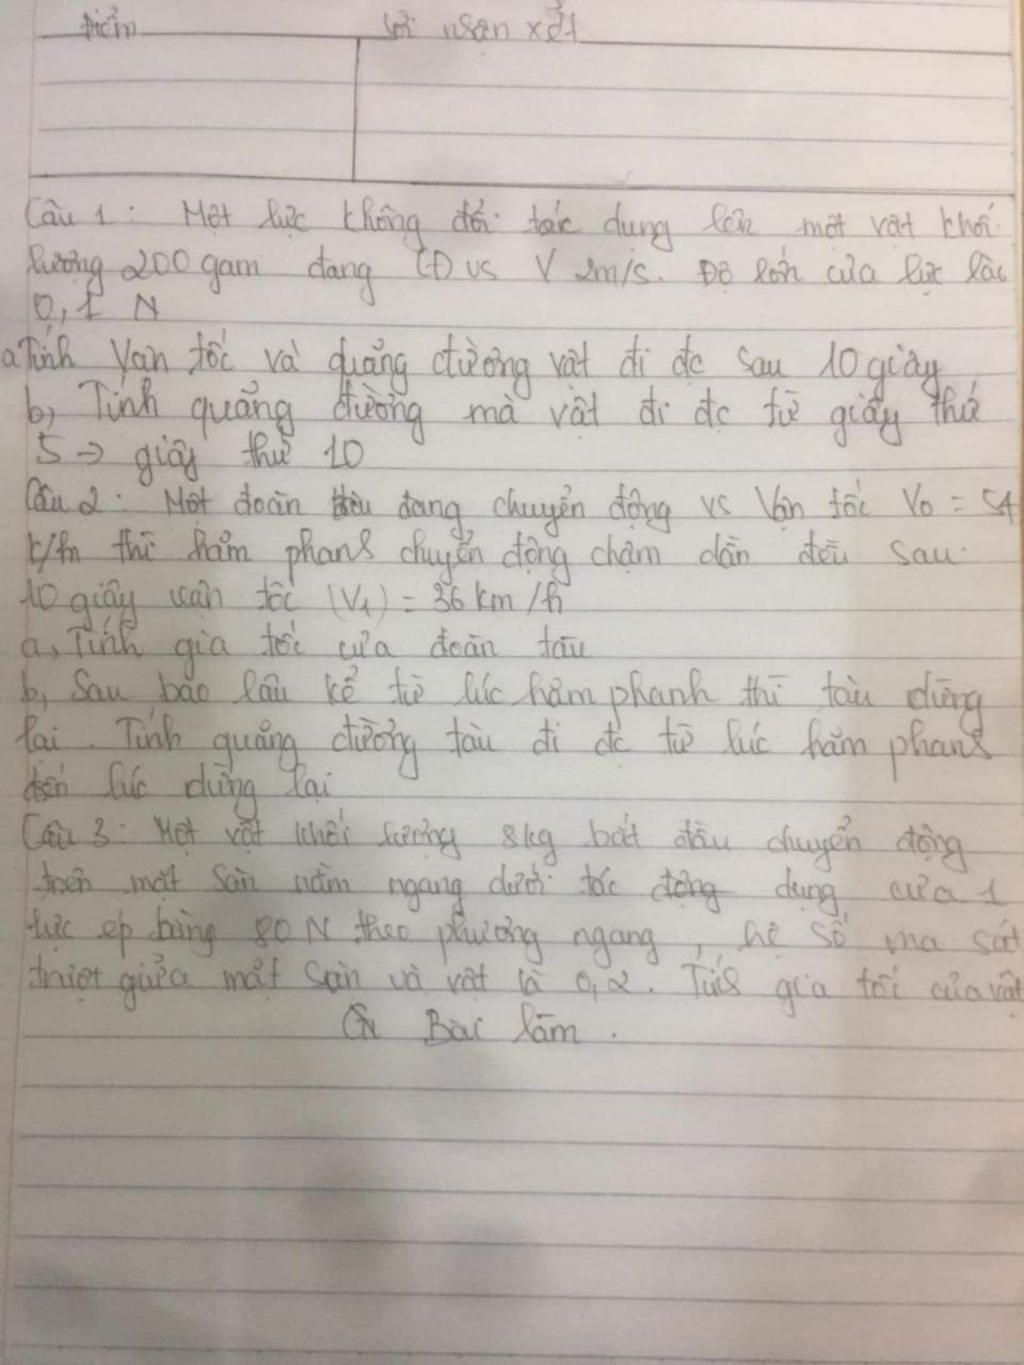 Điểm Lời nhận xét
Câu 1: Một lực không đổi tác dụng lên một vật khối
lượng 200 gam đang CĐ vs V 2m/s. Độ lớn của lực lác
0,1 N
a Tính Vận tốc và quãng đường vật đi đc sau 10 giây
b, Tính quãng đường mà vật đi đc từ giây thứ
5 → giây thứ 10
Câu 2: Một đoàn tàu đang chuyển động vs Vận tốc V0 = 54
k/h thì hãm phanh chuyển động chậm dần đều sau
10 giây vận tốc (V1) = 36 km/h
a, Tính gia tốc của đoàn tàu
b, Sau bao lâu kể từ lúc hãm phanh thì tàu dừng
lại. Tính quãng đường tàu đi đc từ lúc hãm phanh
đến lúc dừng lại
Câu 3: Một vật khối lượng 8kg bắt đầu chuyển động
trên mặt sàn nằm ngang dưới tác động dụng của 1
lực ép bằng 80 N theo phương ngang, hệ số ma sát
trượt giữa mặt sàn và vật là 0,2. Tính gia tốc của vật
Bài làm.